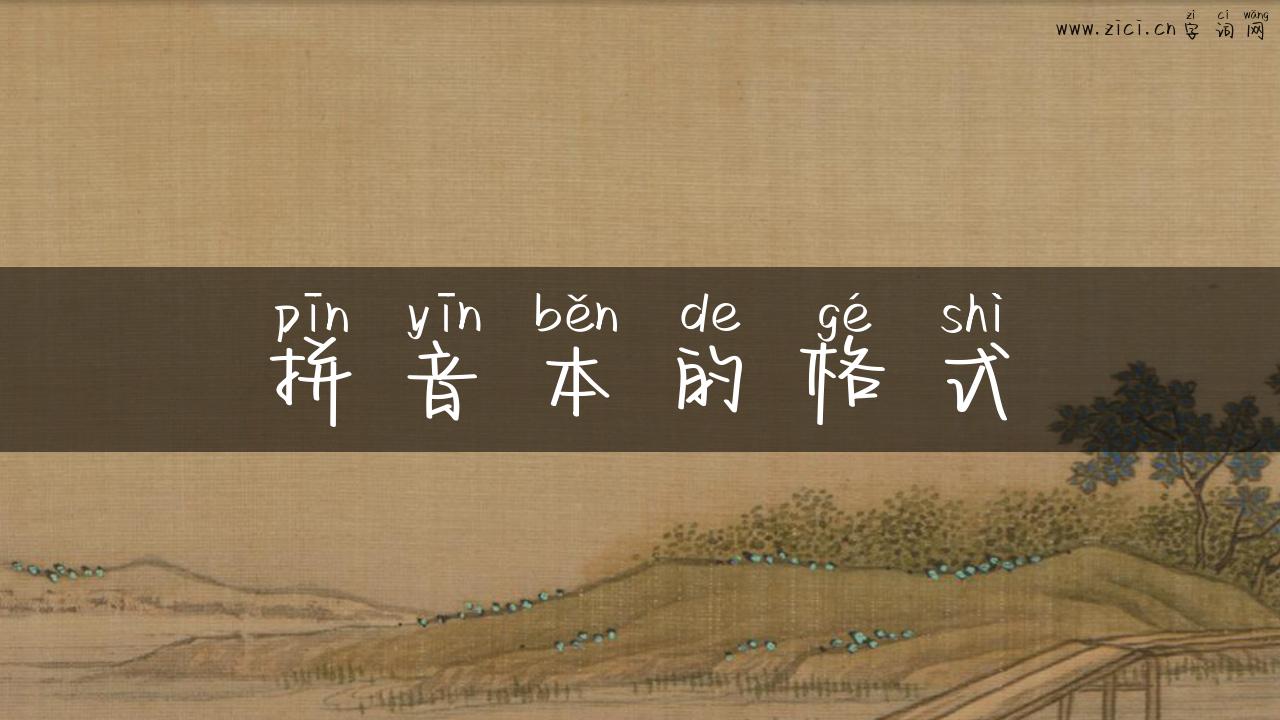 zì cí wǎng
www.zici.cn字词网
pīn yīn běn de gé shì
拼音本的格式